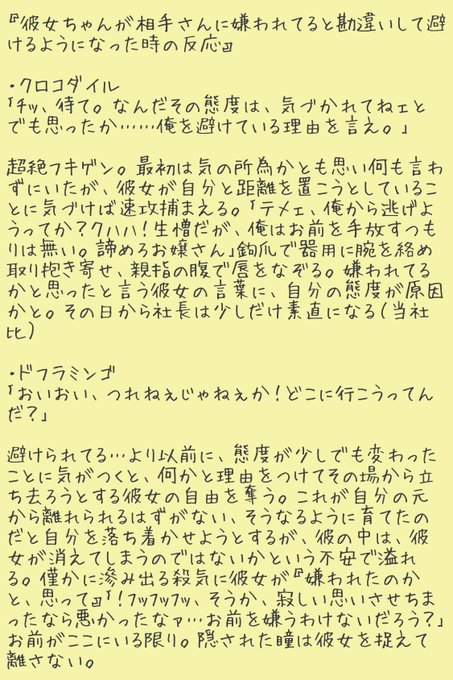 『彼女ちゃんが相手さんに嫌われてると勘違いして避
けるようになった時の反応』
・クロコダイル
「チッ、待て。なんだその態度は、気づかれてねェと
でも思ったか……俺を避けている理由を言え。」
超絶フキゲン。最初は気の所為かとも思い何も言わ
ずにいたが、彼女が自分と距離を置こうとしているこ
とに気づけば速攻捕まえる。「テメェ、俺から逃げよ
うってか？クハハ！生憎だが、俺はお前を手放すつも
りは無い。諦めろお嬢さん」鉤爪で器用に腕を絡め
取り抱き寄せ、親指の腹で唇をなぞる。嫌われてる
かと思ったと言う彼女の言葉に、自分の態度が原因
かと。その日から社長は少しだけ素直になる（当社
比）
・ドフラミンゴ
「おいおい、つれねぇじゃねぇか！どこに行こうってん
だ？」
避けられてる…より以前に、態度が少しでも変わった
ことに気がつくと、何かと理由をつけてその場から立
ち去ろうとする彼女の自由を奪う。これが自分の元
から離れられるはずがない、そうなるように育てたの
だと自分を落ち着かせようとするが、彼の中は、彼
女が消えてしまうのではないかという不安で溢れ
る。僅かに滲み出る殺気に彼女が『嫌われたのか
と、思って』「！フッフッフッ、そうか、寂しい思いさせちま
ったなら悪かったなァ…お前を嫌うわけないだろう？」
お前がここにいる限り。隠された瞳は彼女を捉えて
離さない。